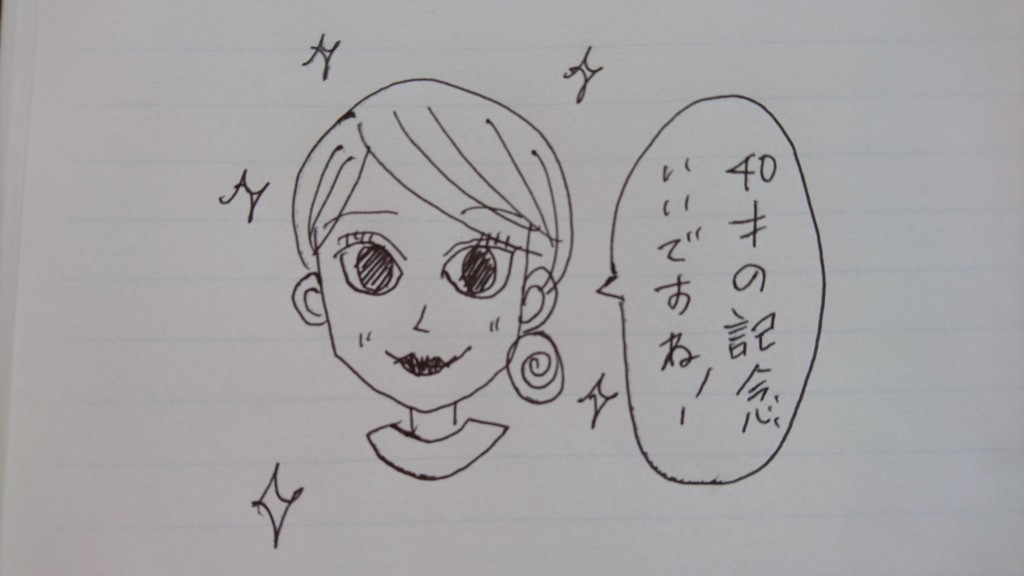 40才の記念
いいですねノー